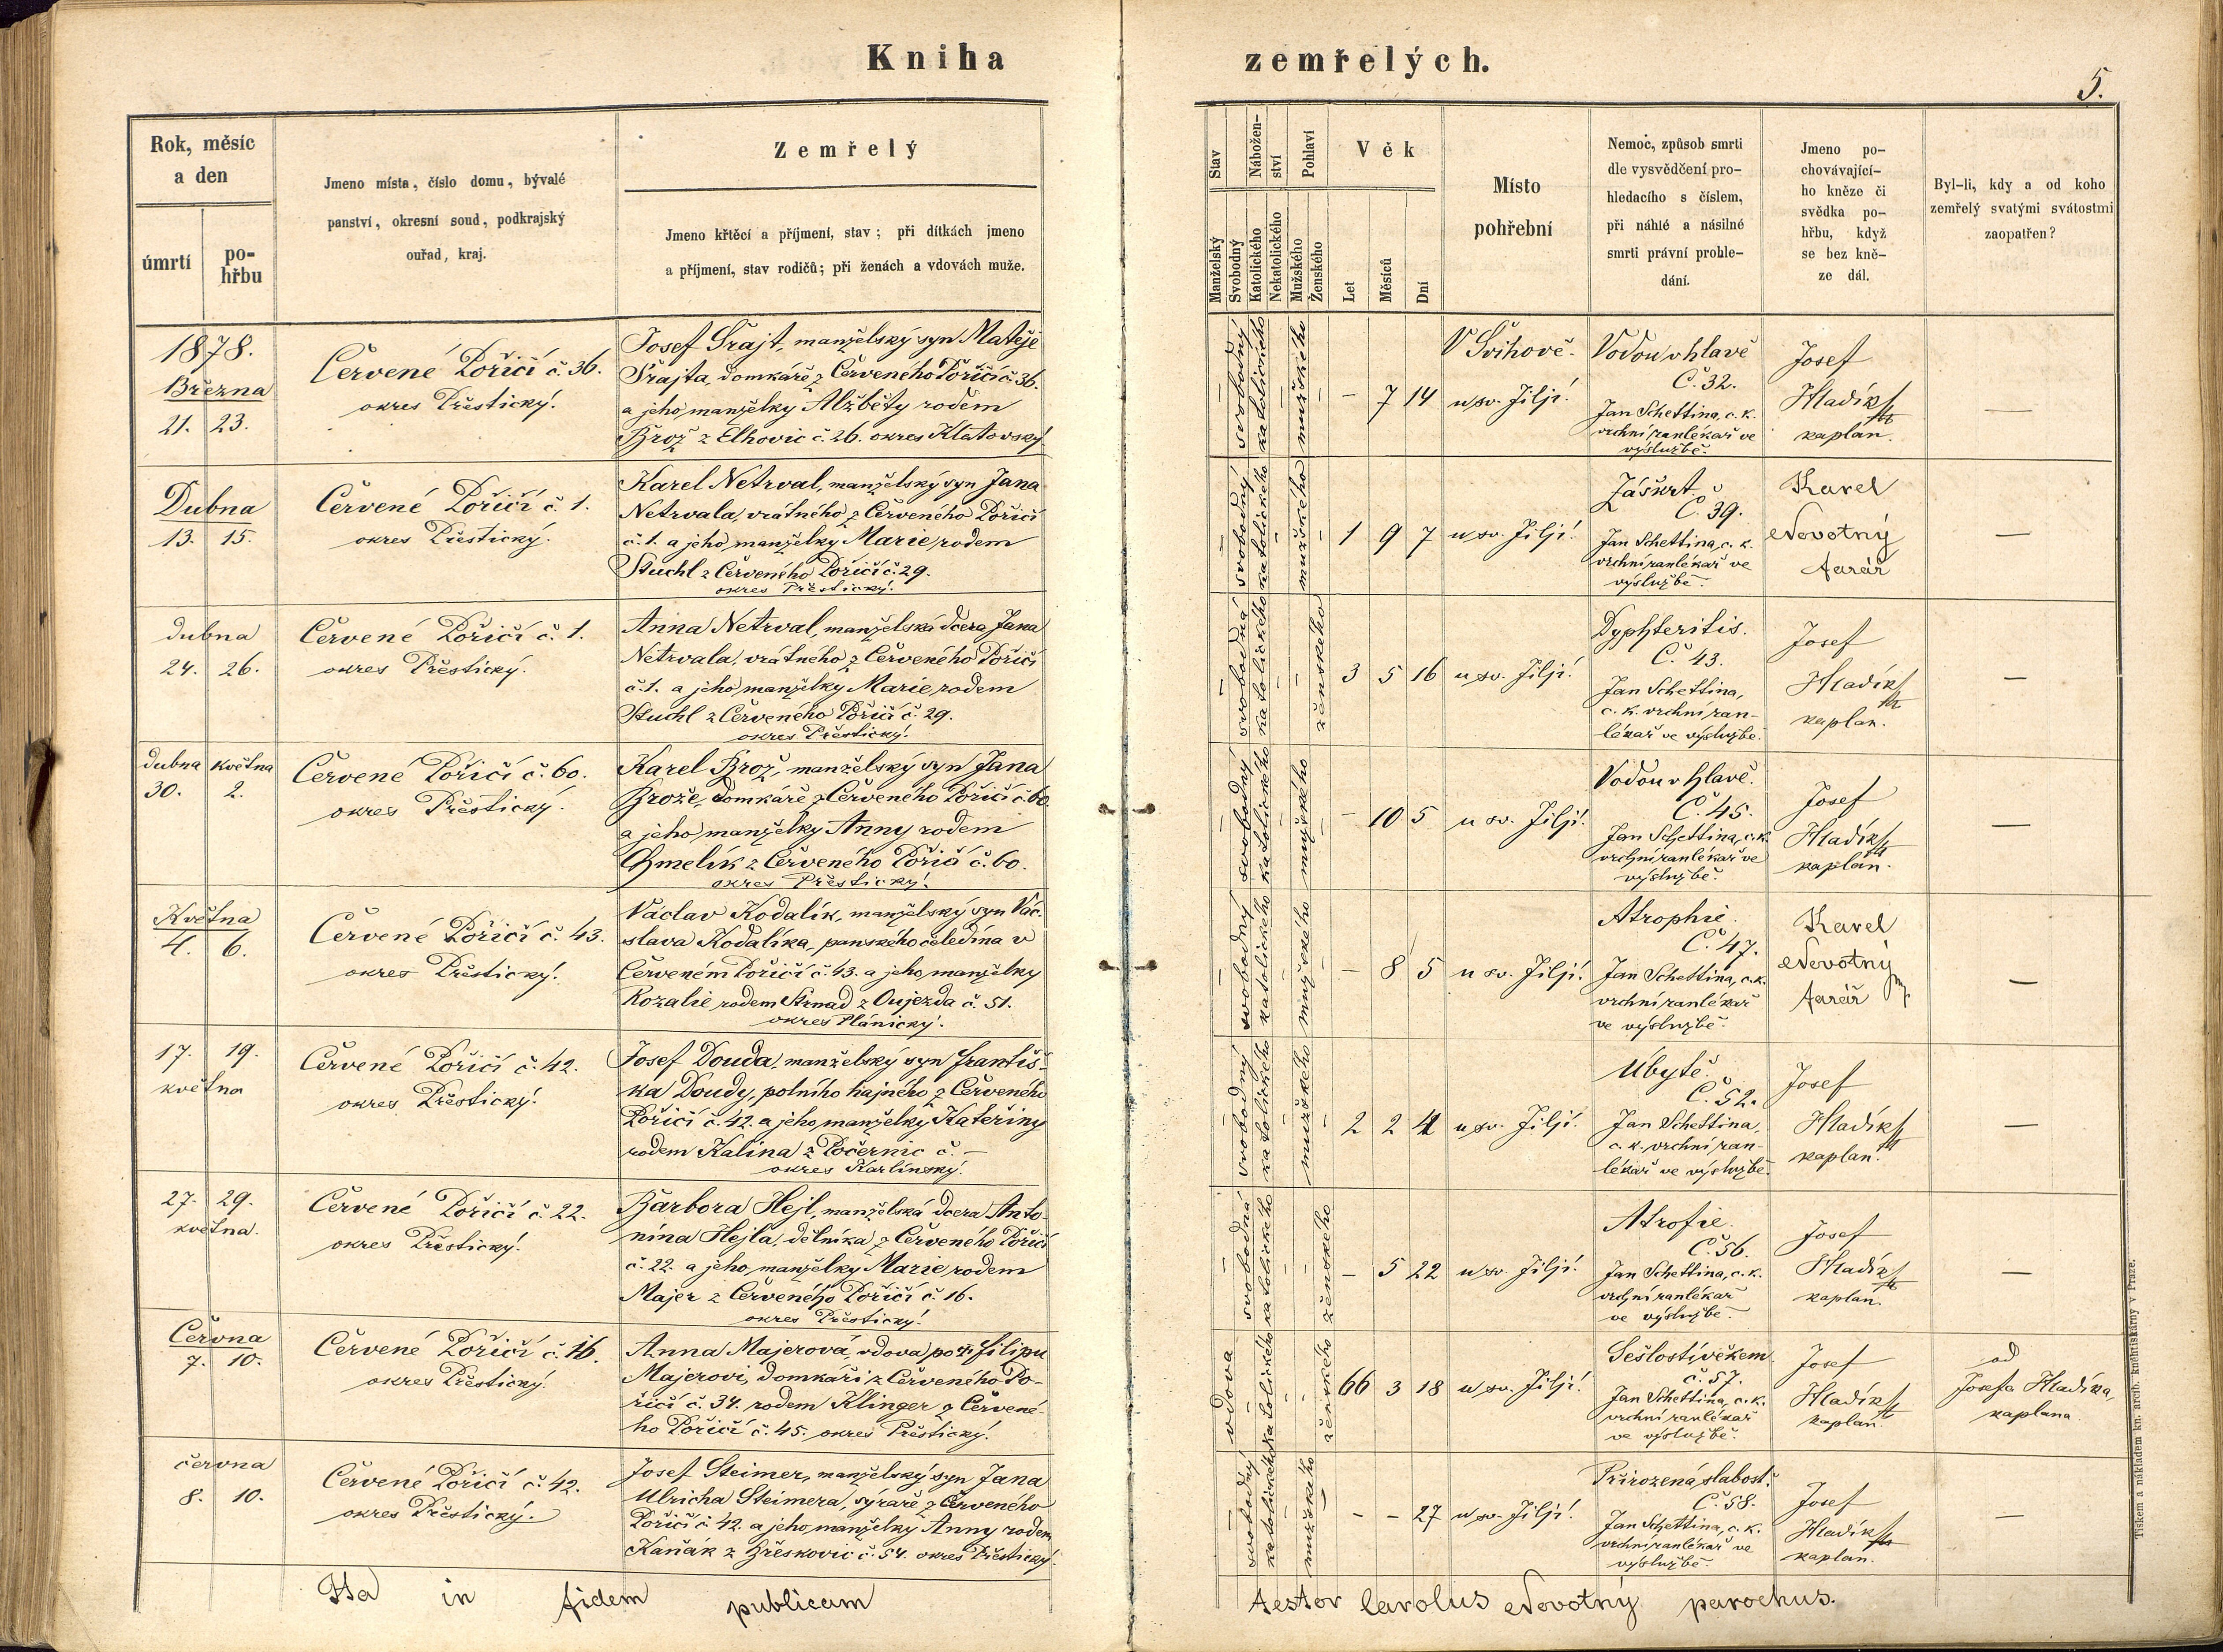 Kniha zemřelých.
5.
Rok, měsíc
a den
úmrtí
po-
hřbu
Jmeno místa, číslo domu, bývalé
panství, okresní soud, podkrajský
ouřad, kraj.
Zemřelý
Jmeno křtěcí a příjmení, stav; při dítkách jmeno
a příjmení, stav rodičů; při ženách a vdovách muže.
Stav
Manželský
Svobodný
Nábožen-
ství
Katolického
Nekatolického
Pohlaví
Mužského
Ženského
Věk
Let
Měsíců
Dní
Místo
pohřební
Nemoc, způsob smrti
dle vysvědčení pro-
hledacího s číslem,
při náhlé a násilné
smrti právní prohle-
dání.
Jmeno po-
chovávající-
ho kněze či
svědka po-
hřbu, když
se bez kně-
ze dál.
Byl-li, kdy a od koho
zemřelý svatými svátostmi
zaopatřen?
1878.
Března
21. 23.
Červené Poříčí č. 36.
okres Přestický.
Josef Šrajt, manželský syn Matěje
Šrajta, domkáře z Červeného Poříčí č. 36.
a jeho manželky Alžběty rodem
Brož z Elhovic č. 26. okres Klatovský.
– svobodný katolického – mužského –
– 7 14
V Švihově.
u sv. Jiljí.
Vodou v hlavě
Č. 32.
Jan Schettina, c. k.
vrchní ranlékař ve
výslužbě.
Josef
Hladík
kaplan.
—
Dubna
13. 15.
Červené Poříčí č. 1.
okres Přestický.
Karel Netrval, manželský syn Jana
Netrvala, vrátného z Červeného Poříčí
č. 1. a jeho manželky Marie, rodem
Stuchl z Červeného Poříčí č. 29.
okres Přestický.
– svobodný katolického – mužského –
1 9 7
u sv. Jiljí.
Záškrt
Č. 39.
Jan Schettina, c. k.
vrchní ranlékař ve
výslužbě.
Karel
Novotný
farář
—
dubna
24. 26.
Červené Poříčí č. 1.
okres Přestický.
Anna Netrval, manželská dcera Jana
Netrvala, vrátného z Červeného Poříčí
č. 1. a jeho manželky Marie, rodem
Stuchl z Červeného Poříčí č. 29.
okres Přestický.
– svobodná katolického – – ženského
3 5 16
u sv. Jiljí.
Dyphteritis.
Č. 43.
Jan Schettina,
c. k. vrchní ran-
lékař ve výslužbě.
Josef
Hladík
kaplan.
—
dubna května
30. 2.
Červené Poříčí č. 60.
okres Přestický.
Karel Brož, manželský syn Jana
Brože, domkáře z Červeného Poříčí č. 60
a jeho manželky Anny rodem
Chmelík z Červeného Poříčí č. 60.
okres Přestický.
– svobodný katolického – mužského –
– 10 5
u sv. Jiljí.
Vodou v hlavě.
Č. 45.
Jan Schettina, c. k.
vrchní ranlékař ve
výslužbě.
Josef
Hladík
kaplan.
—
Května
4. 6.
Červené Poříčí č. 43.
okres Přestický.
Václav Kodalík, manželský syn Vác-
slava Kodalíka, panského čeledína v
Červeném Poříčí č. 43. a jeho manželky
Rozalie rodem Strnad z Oujezda č. 51.
okres Plánický.
– svobodný katolického – mužského –
– 8 5
u sv. Jiljí.
Atrophie.
Č. 47.
Jan Schettina, c. k.
vrchní ranlékař
ve výslužbě.
Karel
Novotný
farář
—
17. 19.
května
Červené Poříčí č. 42.
okres Přestický.
Josef Douda, manželský syn Františ-
ka Doudy, polního hajného z Červeného
Poříčí č. 42. a jeho manželky Kateřiny
rodem Kalina z Počernic č. –
okres Karlínský.
– svobodný katolického – mužského –
2 2
u sv. Jiljí.
Úbytě.
Č. 52.
Jan Schettina,
c. k. vrchní ran-
lékař ve výslužbě.
Josef
Hladík
kaplan.
—
27. 29.
května.
Červené Poříčí č. 22.
okres Přestický.
Barbora Hejl, manželská dcera Anto-
nína Hejla, dělníka z Červeného Poříčí
č. 22. a jeho manželky Marie rodem
Majer z Červeného Poříčí č. 16.
okres Přestický.
– svobodná katolického – – ženského
– 5 22
u sv. Jiljí.
Atrofie.
Č. 56.
Jan Schettina, c. k.
vrchní ranlékař
ve výslužbě.
Josef
Hladík
kaplan.
—
Června
7. 10.
Červené Poříčí č. 16.
okres Přestický.
Anna Majerová, vdova po † Filipu
Majerovi, domkáři z Červeného Po-
říčí č. 34. rodem Klinger z Červené-
ho Poříčí č. 45. okres Přestický.
vdova – katolického – – ženského
66 3 18
u sv. Jiljí.
Sešlostí věkem
č. 57.
Jan Schettina, c. k.
vrchní ranlékař
ve výslužbě.
Josef
Hladík
kaplan.
od
Josefa Hladíka,
kaplana
června
8. 10.
Červené Poříčí č. 42.
okres Přestický.
Josef Steimer, manželský syn Jana
Ulricha Steimera, sýraře z Červeného
Poříčí č. 42. a jeho manželky Anny rodem
Kaňák z Břeskovic č. 54. okres Přestický.
– svobodný katolického – mužského –
– – 27
u sv. Jiljí.
Přirozená slabost.
Č. 58.
Jan Schettina, c. k.
vrchní ranlékař ve
výslužbě.
Josef
Hladík
kaplan.
—
Ita in fidem publicam testor Carolus Novotný parochus.
Tiskem a nákladem kn. arcib. knihtiskárny v Praze.